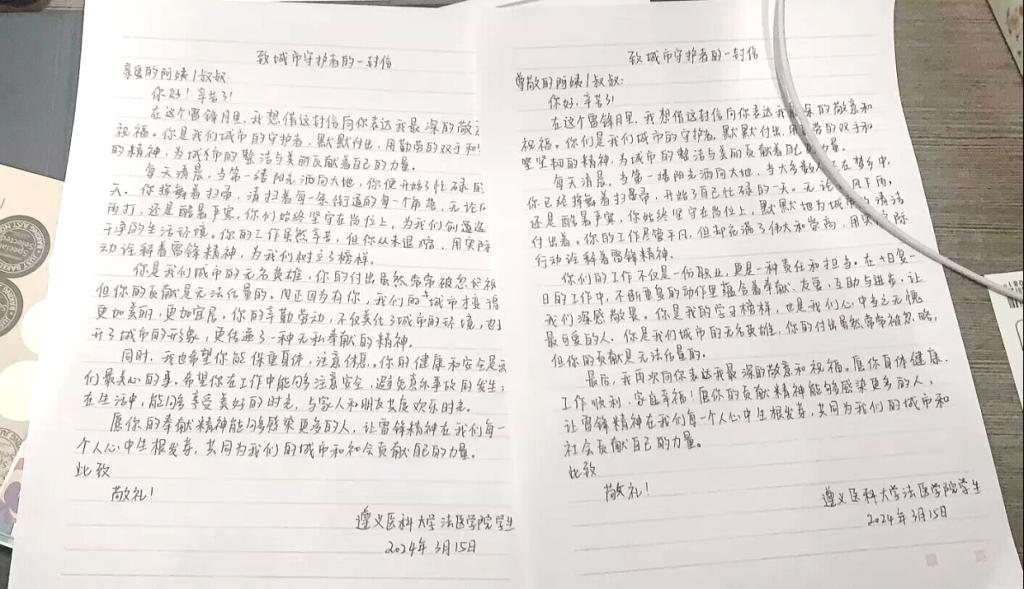 致城市守护者的一封信
亲爱的阿姨/叔叔:
你好!辛苦了!
在这个雷锋月里,我想借这封信向你表达我最深的敬意
祝福。你是我们城市的守护者,默默付出,用勤劳的双手和
的精神,为城市的整洁与美丽贡献着自己的力量。
每天清晨,当第一缕阳光洒向大地,你便开始了忙碌的
天。你挥舞着扫帚,清扫着每一条街道的每一个角落,无论风
雨打,还是酷暑严寒,你们始终坚守在岗位上,为我们创造这
干净的生活环境。你的工作虽然辛苦,但你从未退缩,用实际
动诠释着雷锋精神,为我们树立了榜样。
你是我们城市的无名英雄,你的付出虽然常常被忽视
但你的贡献是无法估量的。因正因为有你,我们的城市才变得
更加美丽,更加宜居。你的辛勤劳动,不仅美化了城市的环境,也
升了城市的形象,更传递了一种无私奉献的精神。
同时,我也希望你能保重身体,注意休息。你的健康和安全是我
们最关心的事。希望你在工作中能够注意安全,避免意外事故的发生;
在生活中,能够享受美好的时光,与家人和朋友共度欢乐时光。
愿你的奉献精神能够感染更多的人,让雷锋精神在我们每一
个人心中生根发芽,共同为我们的城市和社会贡献自己的力量。
此致
敬礼!
遵义医科大学法医学院学生
2024年3月15日
致城市守护者的一封信
尊敬的阿姨/叔叔:
你好,辛苦了!
在这个雷锋月里,我想借这封信向你表达我最深的敬意和
祝福。你们是我们城市的守护者,默默付出,用勤劳的双手和
坚韧的精神,为城市的整洁与美丽贡献着自己的力量。
每天清晨,当第一缕阳光洒向大地,当大多数人还在梦中,
你已经挥舞着扫帚,开始了自己忙碌的一天。无论风下雨,
还是酷暑严寒,你始终坚守在岗位上,默默地为城市的清洁
付出着。你的工作尽管平凡,但却充满了伟大和崇高,用实际
行动诠释着雷锋精神。
你们的工作不仅是一份职业,更是一种责任和担当。在日复一
日的工作中,不断重复的动作里蕴含着奉献、友爱、互助与进步,让
我们深感敬畏。你是我的学习榜样,也是我们心中当之无愧
最可爱的人。你是我们城市的无名英雄,你的付出虽然常常被忽略,
但你的贡献是无法估量的。
最后,我再次向你表达我最深的敬意和祝福。愿你身体健康、
工作顺利、家庭幸福!愿你的贡献精神能够感染更多的人,
让雷锋精神在我们每一个人心中生根发芽,共同为我们的城市和
社会贡献自己的力量。
此致
敬礼!
遵义医科大学法医学院学生
2024年3月15日